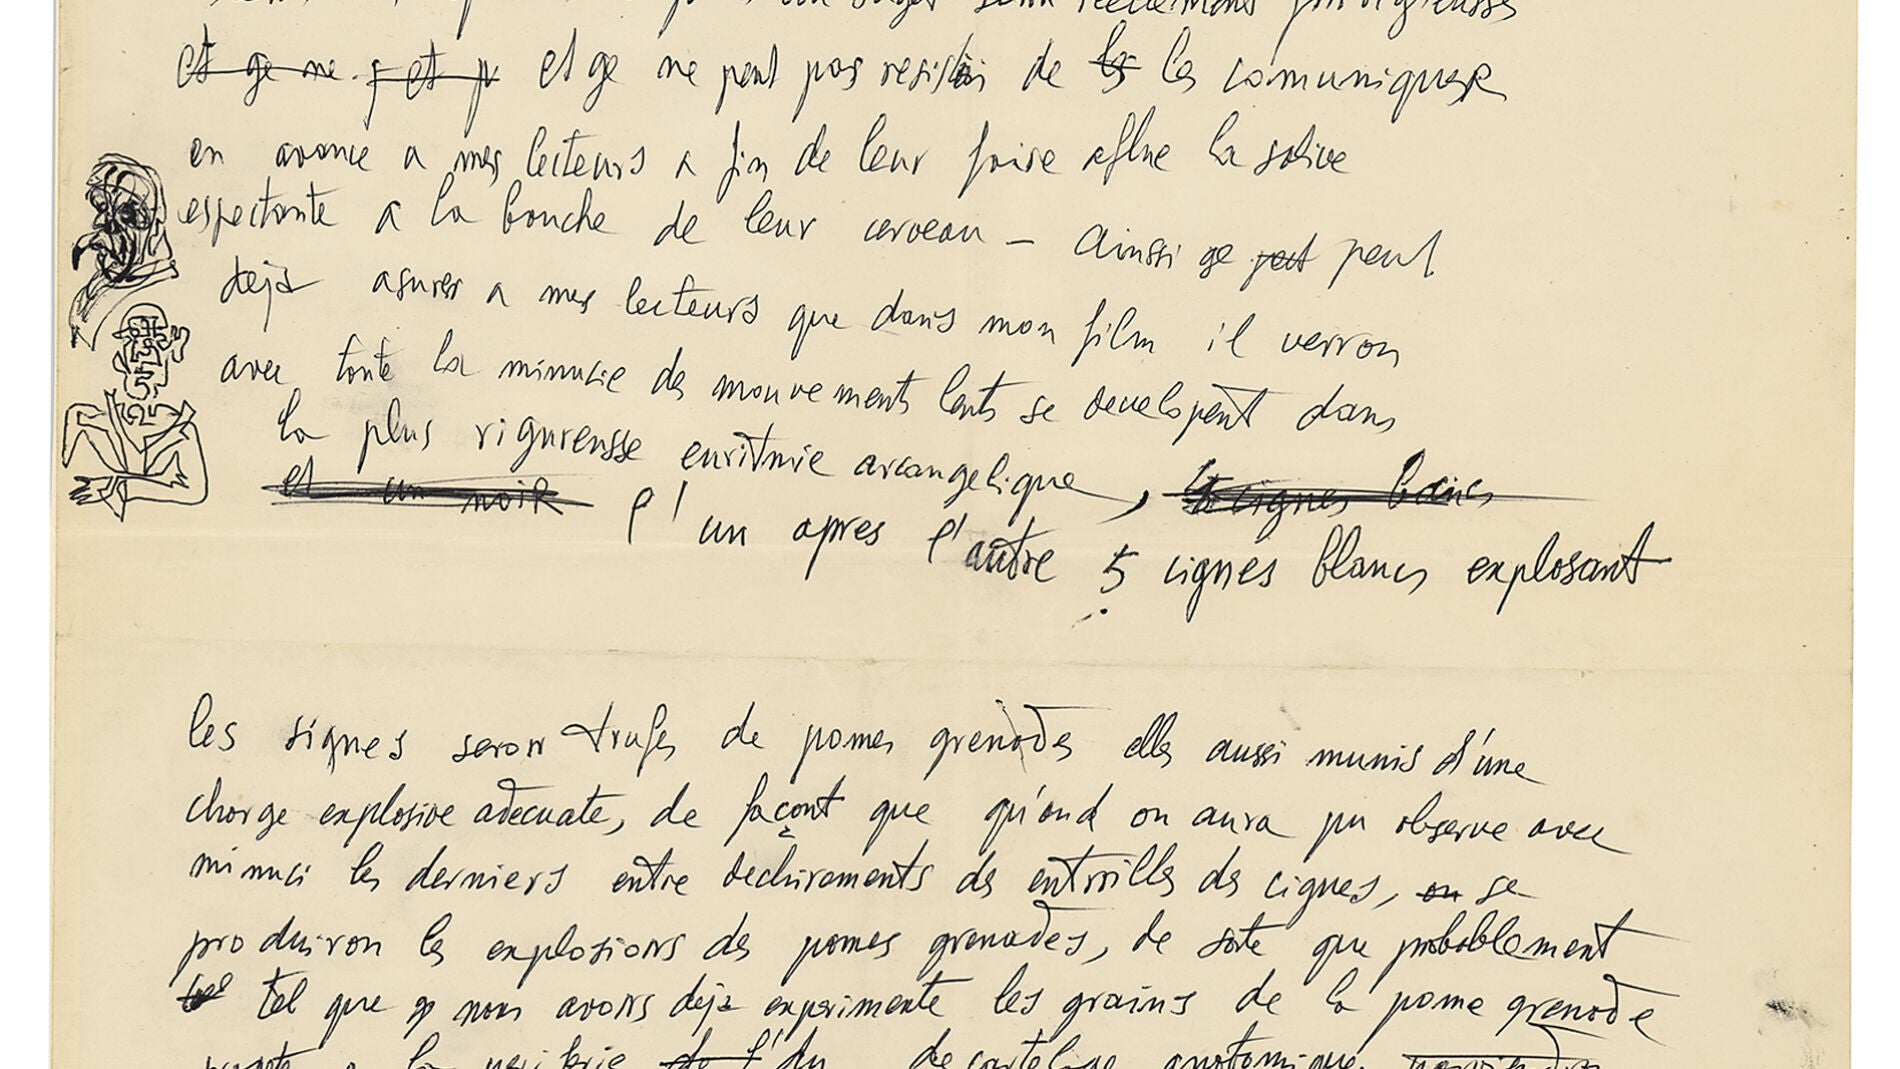 et ge ne et p et ge ne peut pas resistir de les les comuniquer
en avance a mes lecteurs a fin de leur faire aflue la salive
espectante a la bouche de leur cerveau – Ainsi ge peut peut
deja asurer a mes lecteurs que dans mon film il verron
avec toute la minucie des mouvements lents se developent dans
la plus rigureusse euritmie arcangelique, cignes blancs
et un noir l'un apres l'autre 5 cignes blancs explosant
les signes seron trufes de pomes grenades elles aussi munis d'une
charge explosive adecuate, de façont que qu'and on aura pu observe avec
minuci les derniers entre dechirements des entrailles des cignes, on se
produiron les explosions des pomes grenades, de sorte que probablement
tel tel que nous avons deja experimente les grains de la pome grenade
a la de l'du anatomique,